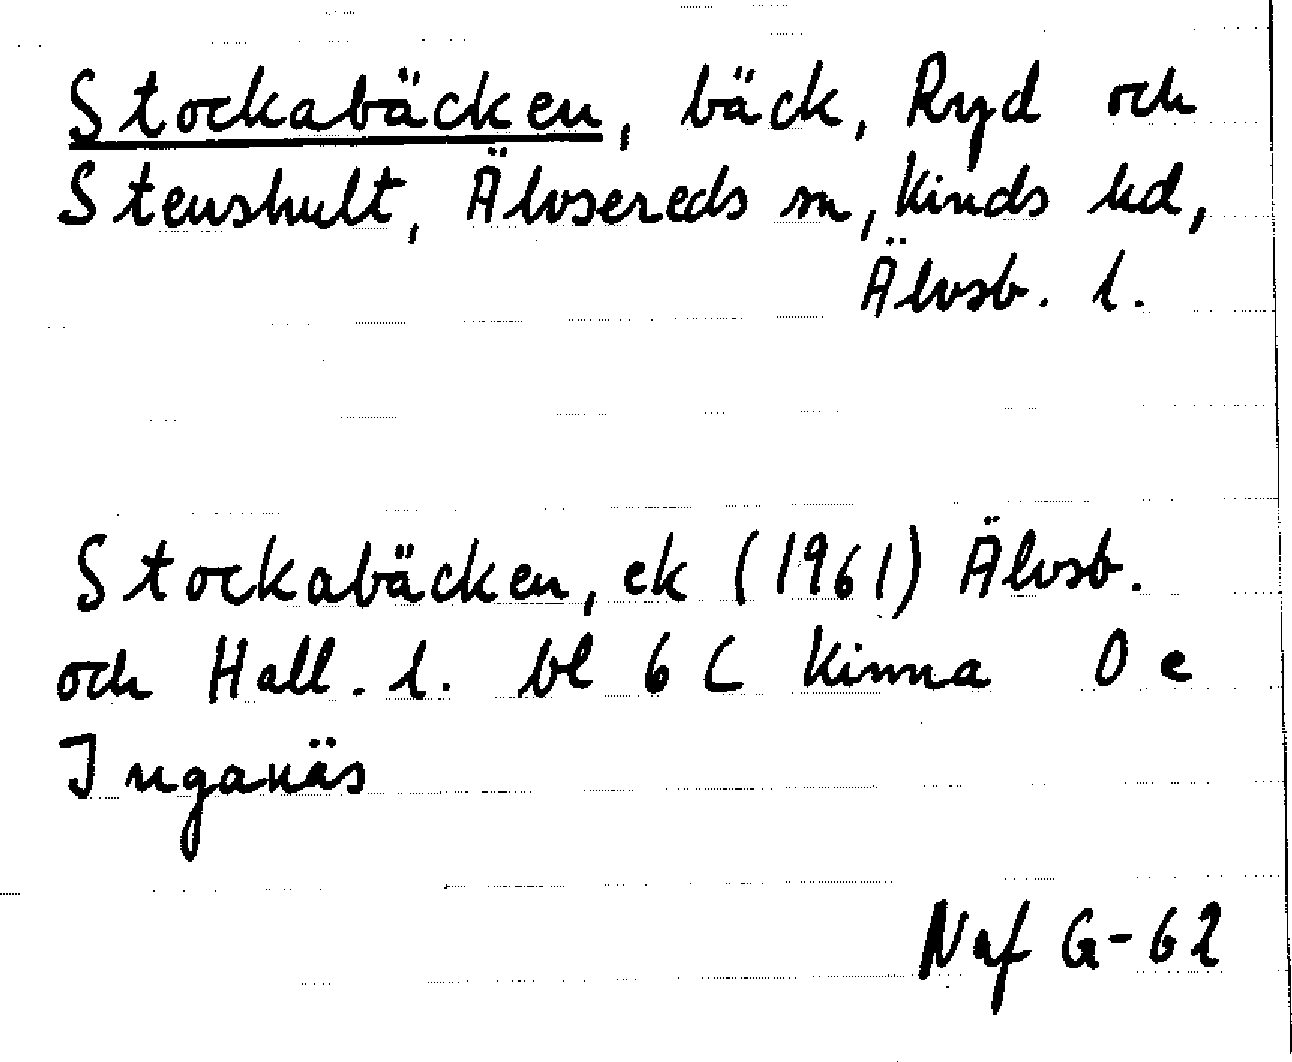 Stockabäcken, bäck, Ryd och
Stenshult, Älvsereds sn, Kinds hd,
Älvsb. l.
Stockabäcken, ek (1961) Älvsb.
och Hall. l. bl 6 C Kinna 0 e
Inganäs
Naf G-62